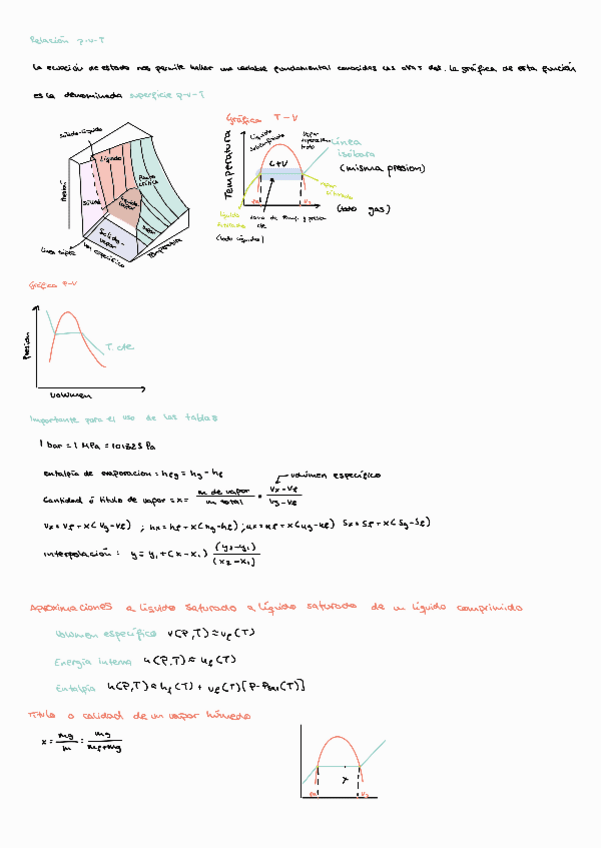 Relación p-v-T
La ecuación de estado nos permite hallar una variable fundamental conocidas las otras dos. La gráfica de esta función
es la denominada superficie p-v-T
Gráfica T-V
sólido-líquido
Líquido
Punto crítico
Presión
sólido
Líquido vapor
vapor
Sólido-vapor
Línea triple
Vm específico
Temperatura
Temperatura
Líquido subenfriado
L+V
Línea isóbara
(misma presion)
vapor saturado
(todo gas)
líquido saturado
(todo líquido)
zona de temp. y presion cte
Gráfica P-V
Presión
T. cte
Volumen
Importante para el uso de las tablas
1 bar = 1 MPa = 101325 Pa
entalpía de evaporación = hfg = hg - hf
volúmen específico
Cantidad ó título de vapor = x = m de vapor / m total = vx - vf / vg - vf
vx = vf + x(vg - vf) ; hx = hf + x(hg - hf) ; ux = uf + x(ug - uf) sx = sf + x(sg - sf)
Interpolación : y = y1 + (x - x1) (y2 - y1) / (x2 - x1)
Aproximaciones a líquido saturado a líquido saturado de un líquido comprimido
Volumen específico v(P,T) ≈ vf(T)
Energía interna u(P,T) ≈ uf(T)
Entalpía h(P,T) ≈ hf(T) + vf(T)[P - Psat(T)]
Título o calidad de un vapor húmedo
x = mg / m = mg / mf + mg
x